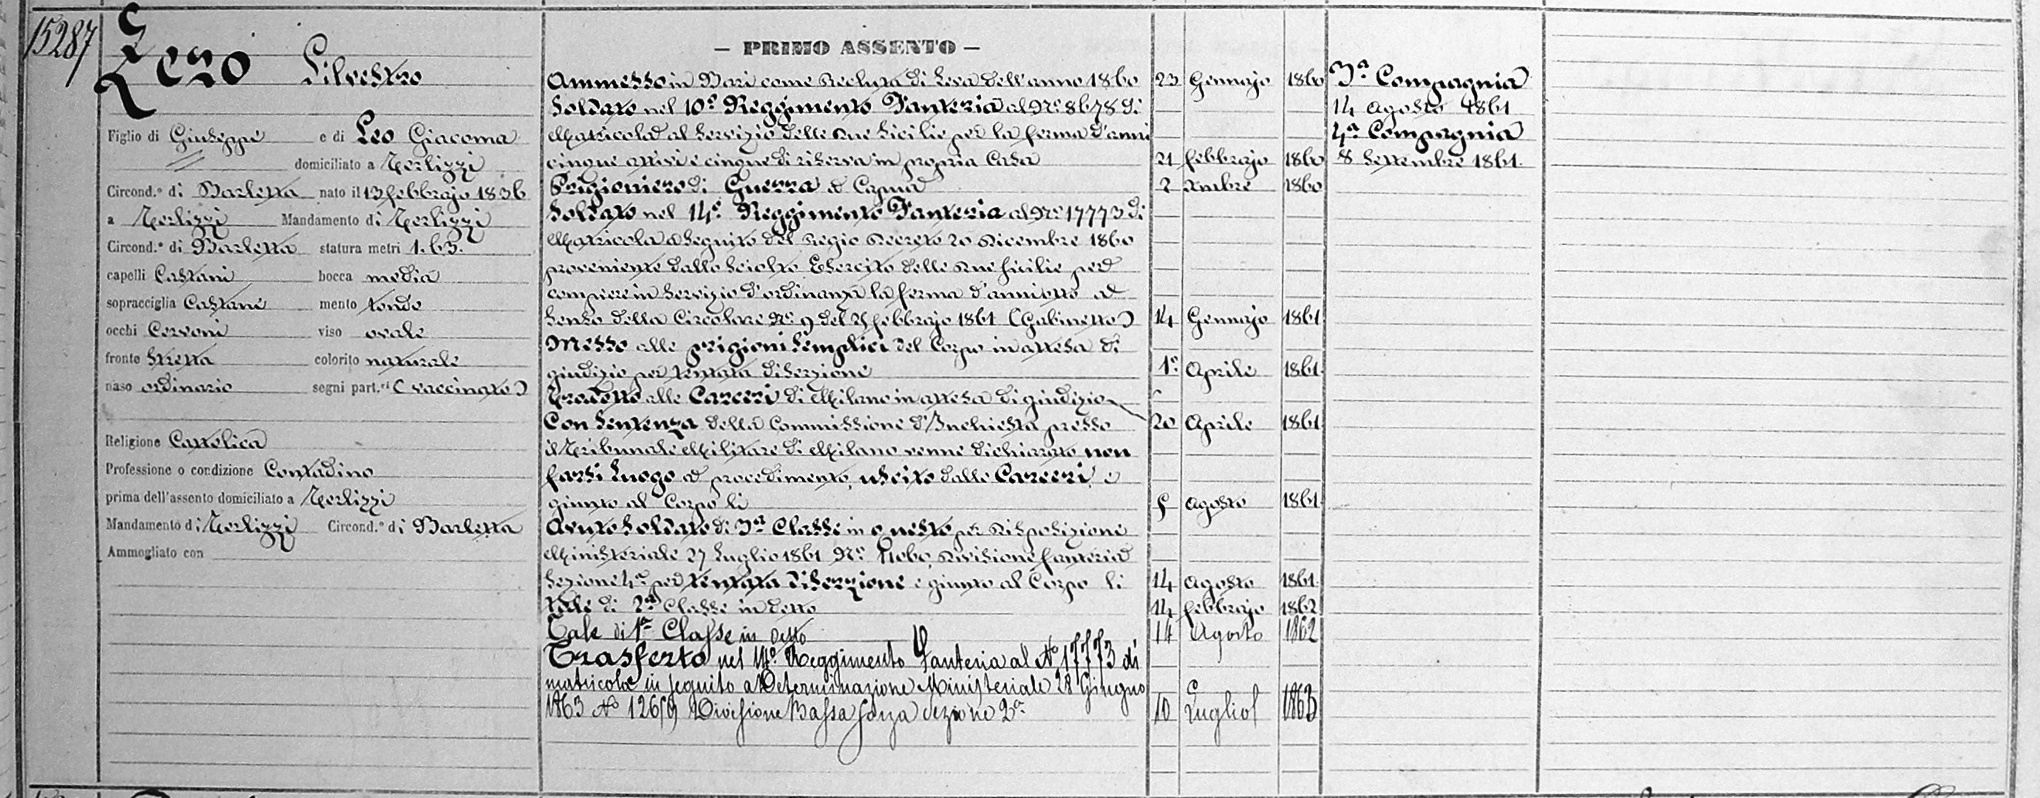 15287
Zezo Silvestro
Figlio di Giuseppe e di Leo Giacoma
domiciliato a Terlizzi
Circond.º di Barletta nato il 13 febbrajo 1836
a Terlizzi Mandamento di Terlizzi
Circond.º di Barletta statura metri 1.63.
capelli Castani bocca media
sopracciglia Castane mento tondo
occhi Cervoni viso ovale
fronte stretta colorito naturale
naso ordinario segni part.ri (vaccinato)
Religione Cattolica
Professione o condizione Contadino
prima dell'assento domiciliato a Terlizzi
Mandamento di Terlizzi Circond.º di Barletta
Ammogliato con
– PRIMO ASSENTO –
Ammesso in Bari come Recluta di Leva dell'anno 1860 23 Gennajo 1860
Soldato nel 10º Reggimento Fanteria al Nº 8678 di
Matricola al Servizio delle Due Sicilie per la ferma d'anni
cinque attivi e cinque di riserva in propria Casa 21 febbrajo 1860
Prigioniero di Guerra a Capua 2 Xmbre 1860
Soldato nel 14º Reggimento Fanteria al Nº 17773 di
Matricola a Seguito del Regio Decreto 20 Dicembre 1860
proveniente dallo Sciolto Esercito delle Due Sicilie per
compiere in Servizio d'ordinanza la ferma d'anni otto al
Senso della Circolare Nº 9 del febbrajo 1861 (Gabinetto) 14 Gennajo 1861
Messo alle prigioni Semplici del Corpo in attesa di
giudizio per tentata diserzione 1º Aprile 1861
Tradotto alle Carceri di Milano in attesa di giudizio 20 Aprile 1861
Con Sentenza della Commissione d'Inchiesta presso
il Tribunale Militare di Milano venne dichiarato non
farsi luogo a procedimento, uscito dalle Carceri, e
giunto al Corpo li 5 Agosto 1861
Avuto Soldato di 3ª Classe in questo per Disposizione
Ministeriale 27 Luglio 1861 Nº Divisione fanteria
Sezione 4ª per tentata diserzione e giunto al Corpo li 14 Agosto 1861
Tale di 2ª Classe in detto 14 febbrajo 1862
Tale di 1ª Classe in detto 14 Agosto 1862
Trasferto nel 14º Reggimento Fanteria al Nº 17773 di
matricola in seguito a Determinazione Ministeriale 28 Giugno
1863 Nº Divisione Bassa forza Sezione 2ª 10 Luglio 1863
3ª Compagnia
14 Agosto 1861
4ª Compagnia
8 Settembre 1861.